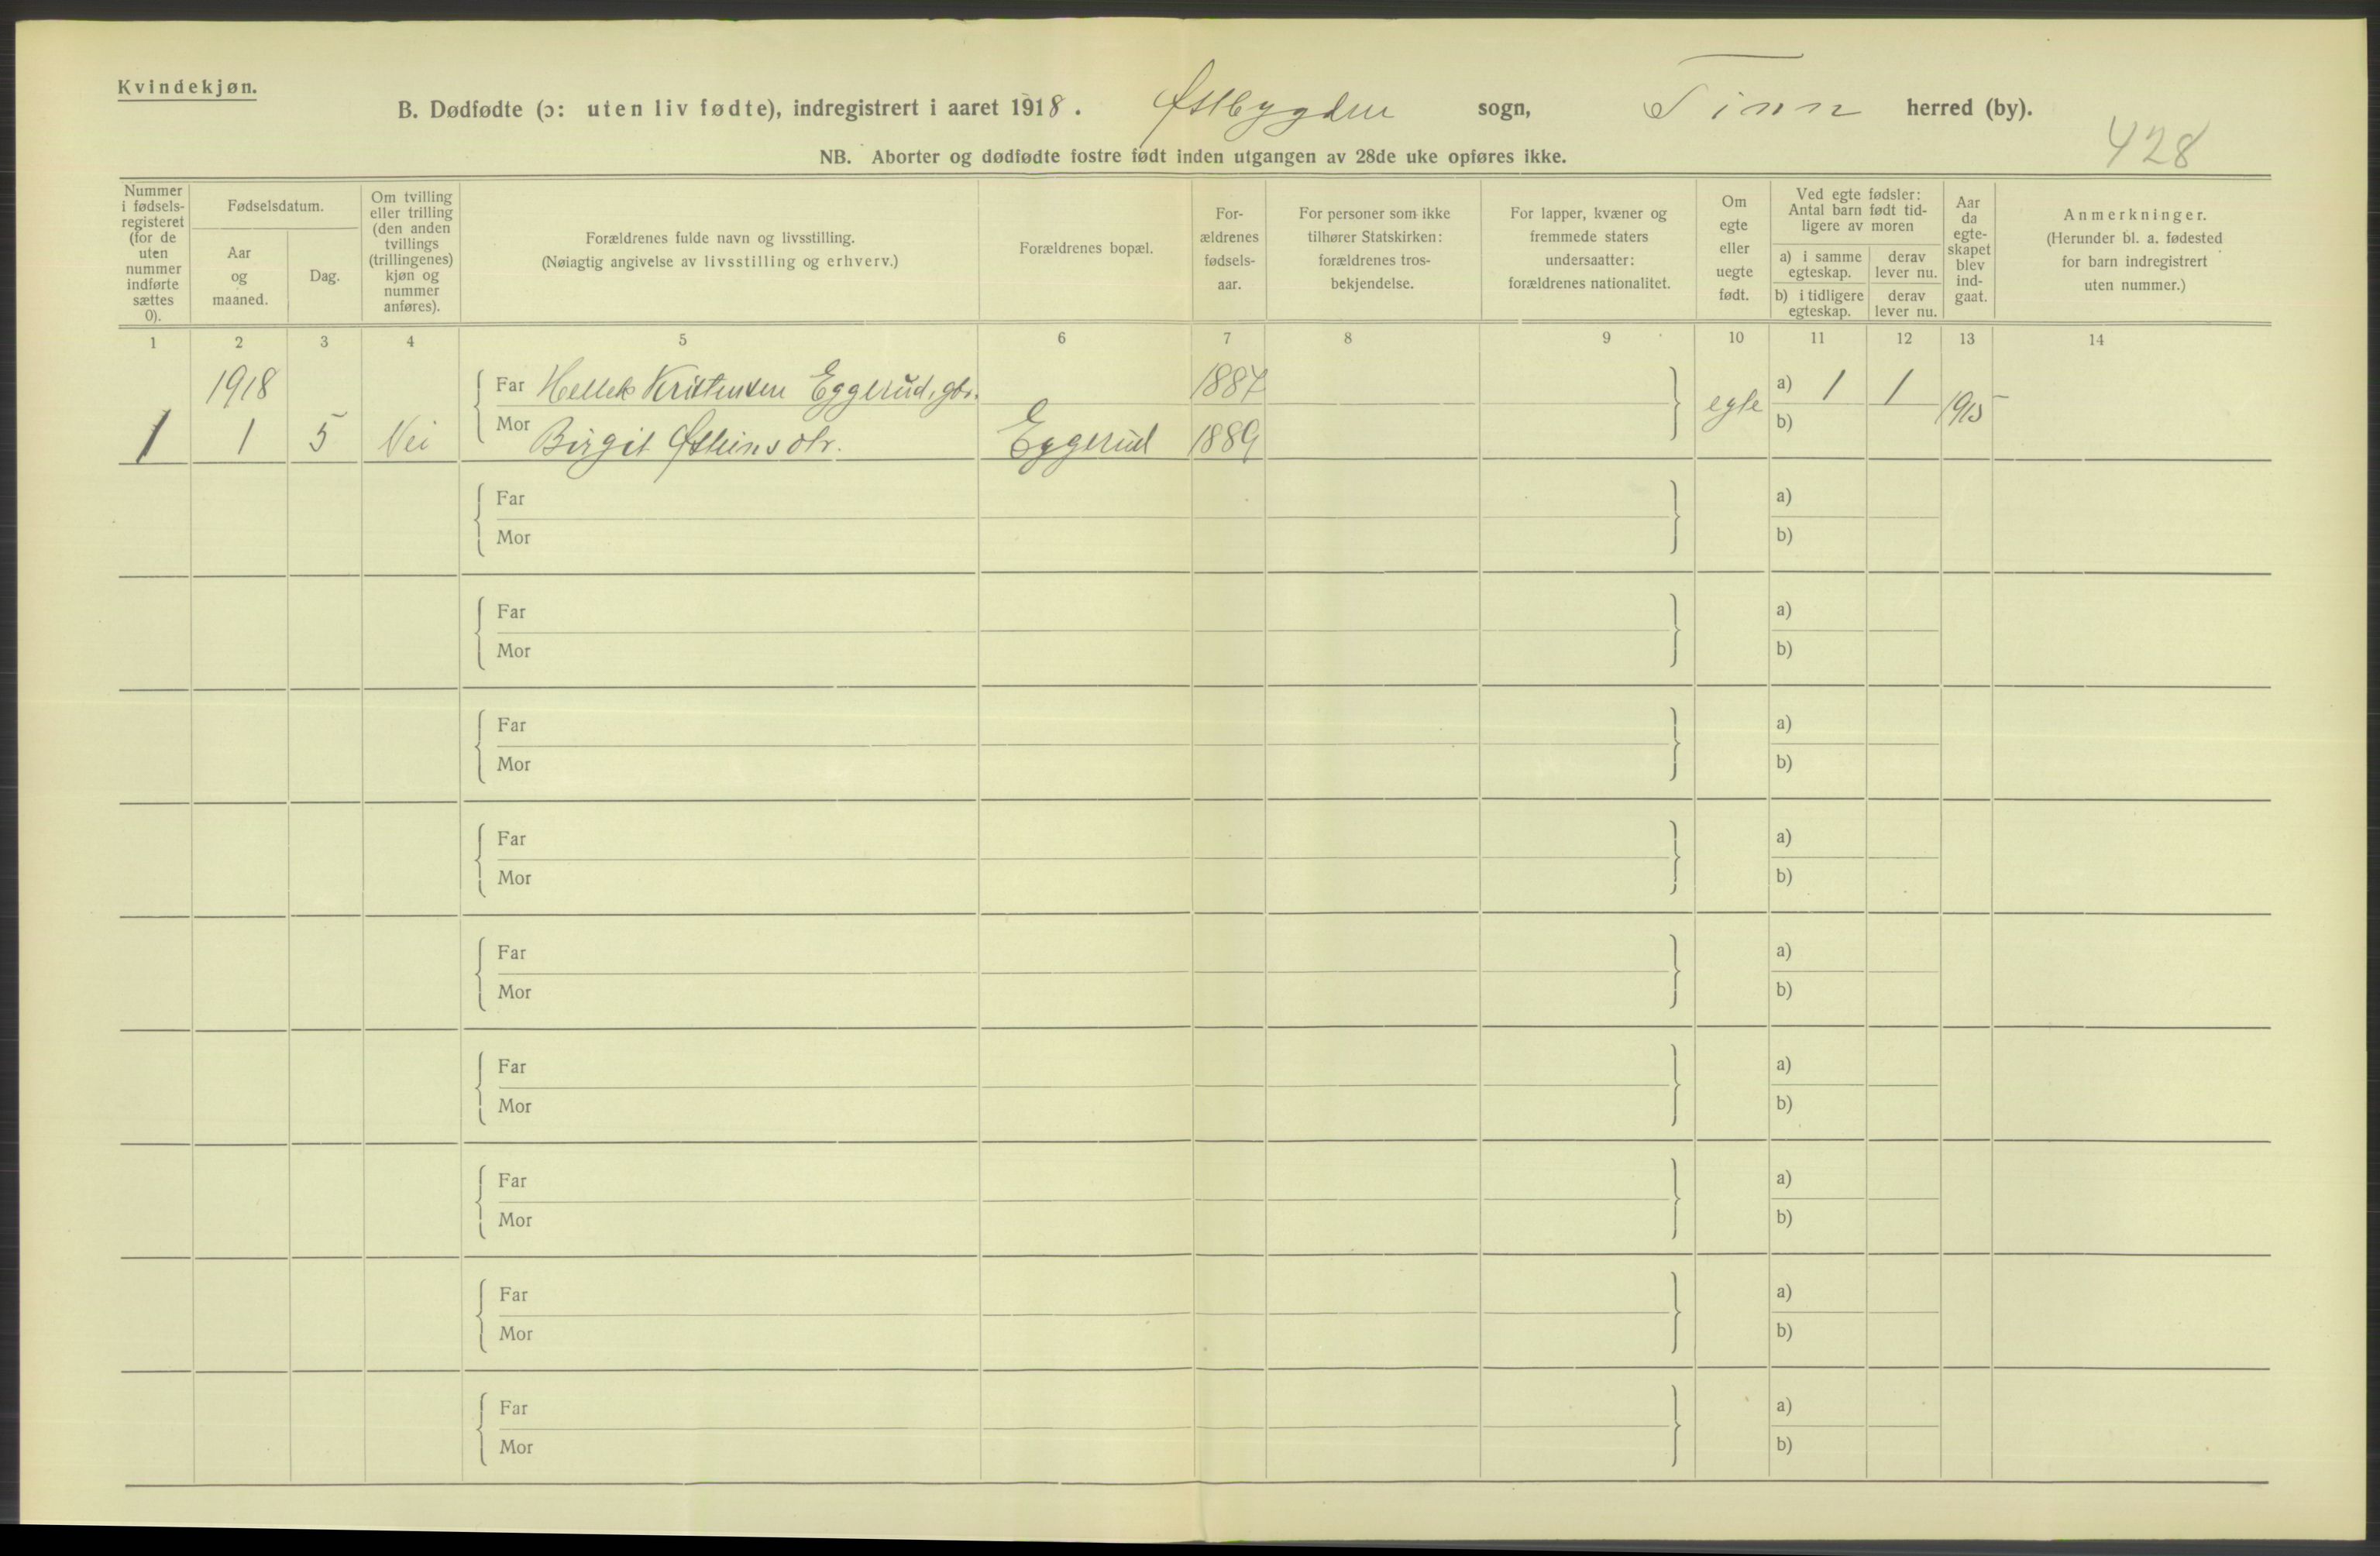 Kvindekjøn.
B. Dødfødte (ɔ: uten liv fødte), indregistrert i aaret 1918. Østbygden sogn, Tinn herred (by).
428
NB. Aborter og dødfødte fostre født inden utgangen av 28de uke opføres ikke.
Nummer
i fødsels-
registeret
(for de
uten
nummer
indførte
sættes
0).
Fødselsdatum.
Aar
og
maaned.
Dag.
Om tvilling
eller trilling
(den anden
tvillings
(trillingenes)
kjøn og
nummer
anføres).
Forældrenes fulde navn og livsstilling.
(Nøiagtig angivelse av livsstilling og erhverv.)
Forældrenes bopæl.
For-
ældrenes
fødsels-
aar.
For personer som ikke
tilhører Statskirken:
forældrenes tros-
bekjendelse.
For lapper, kvæner og
fremmede staters
undersaatter:
forældrenes nationalitet.
Om
egte
eller
uegte
født.
Ved egte fødsler:
Antal barn født tid-
ligere av moren
a) i samme
egteskap.
derav
lever nu.
b) i tidligere
egteskap.
derav
lever nu.
Aar
da
egte-
skapet
blev
ind-
gaat.
Anmerkninger.
(Herunder bl. a. fødested
for barn indregistrert
uten nummer.)
1 2 3 4 5 6 7 8 9 10 11 12 13 14
1918 Far Hellek Kristensen Eggerud, gbr. 1887 egte a) 1 1 1915
1 1 5 Nei Mor Birgit Østeinsdtr. Eggerud 1889 b)
Far a)
Mor b)
Far a)
Mor b)
Far a)
Mor b)
Far a)
Mor b)
Far a)
Mor b)
Far a)
Mor b)
Far a)
Mor b)
Far a)
Mor b)
Far a)
Mor b)